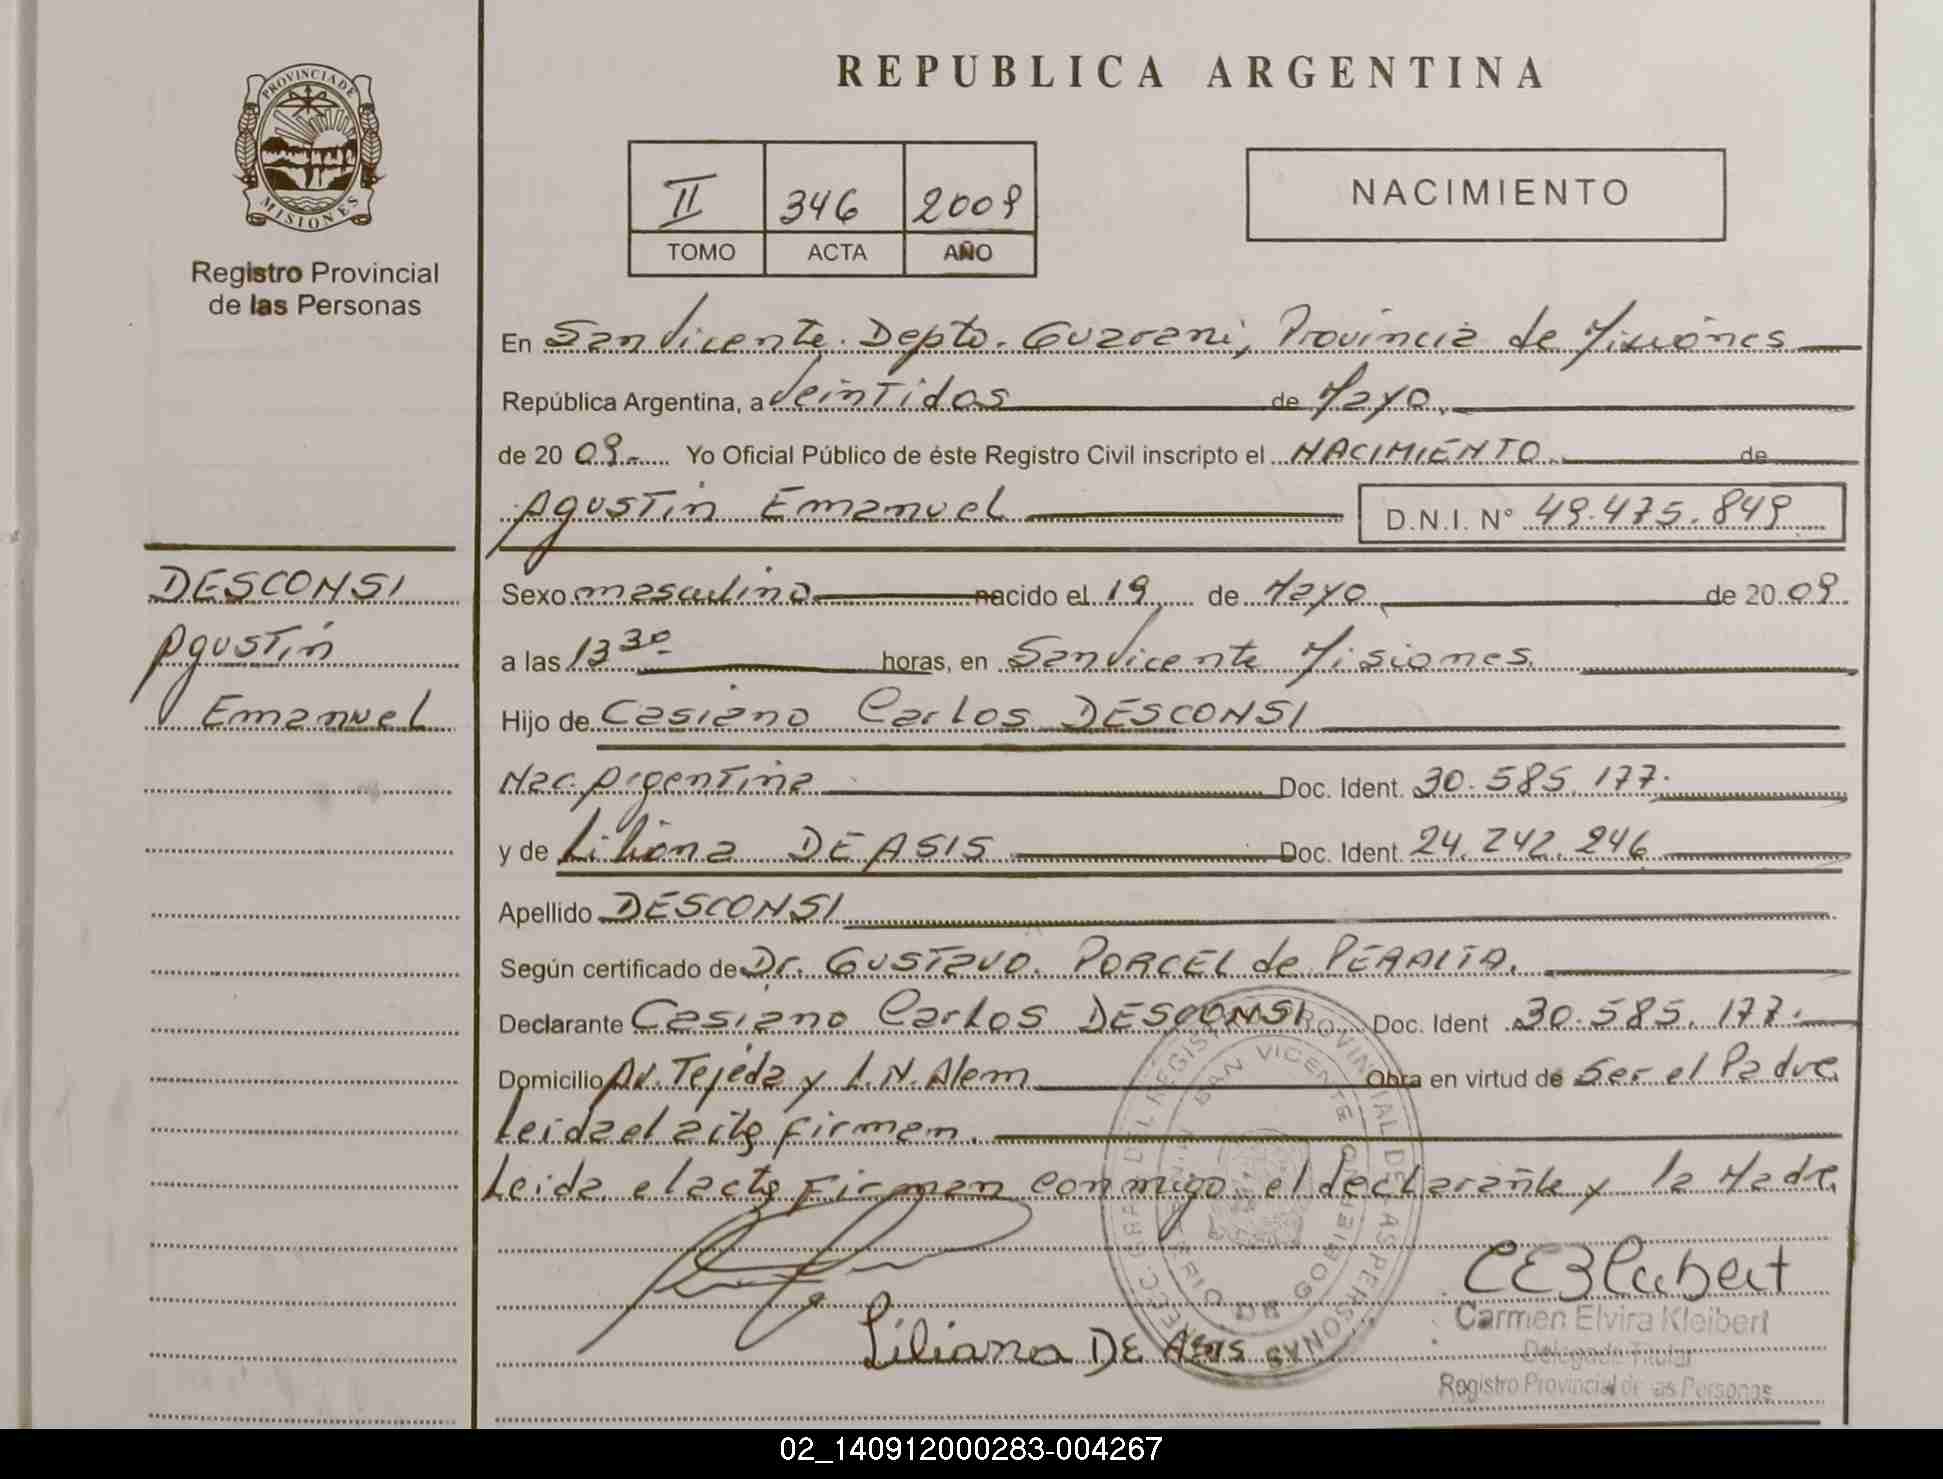 PROVINCIA DE
MISIONES
Registro Provincial
de las Personas
DESCONSI
Agustin
Emanuel
REPUBLICA ARGENTINA
II 346 2009
TOMO ACTA AÑO
NACIMIENTO
En San Vicente. Depto. Guarani, Provincia de Misiones
República Argentina, a Veintidos de Mayo
de 20 09.- Yo Oficial Público de éste Registro Civil inscripto el NACIMIENTO de
Agustin Emanuel D.N.I. N° 49.475.849
Sexo masculino nacido el 19 de Mayo de 20 09
a las 13 30 horas, en San Vicente Misiones.
Hijo de Casiano Carlos DESCONSI
Nac. Argentina Doc. Ident. 30.585.177.
y de Liliana DE ASIS Doc. Ident. 24.242.246
Apellido DESCONSI
Según certificado de Dr. GUSTAVO. PORCEL de PERALTA.
Declarante Casiano Carlos DESCONSI Doc. Ident 30.585.177.
Domicilio Av. Tejeda y L.N. Alem Obra en virtud de Ser el Padre
Leida el acta firman.
Leida el acta Firman conmigo el declarante y la Madre
Liliana DE ASIS
Carmen Elvira Kleibert
Delegada Titular
Registro Provincial de las Personas
SAN VICENTE
02_140912000283-004267